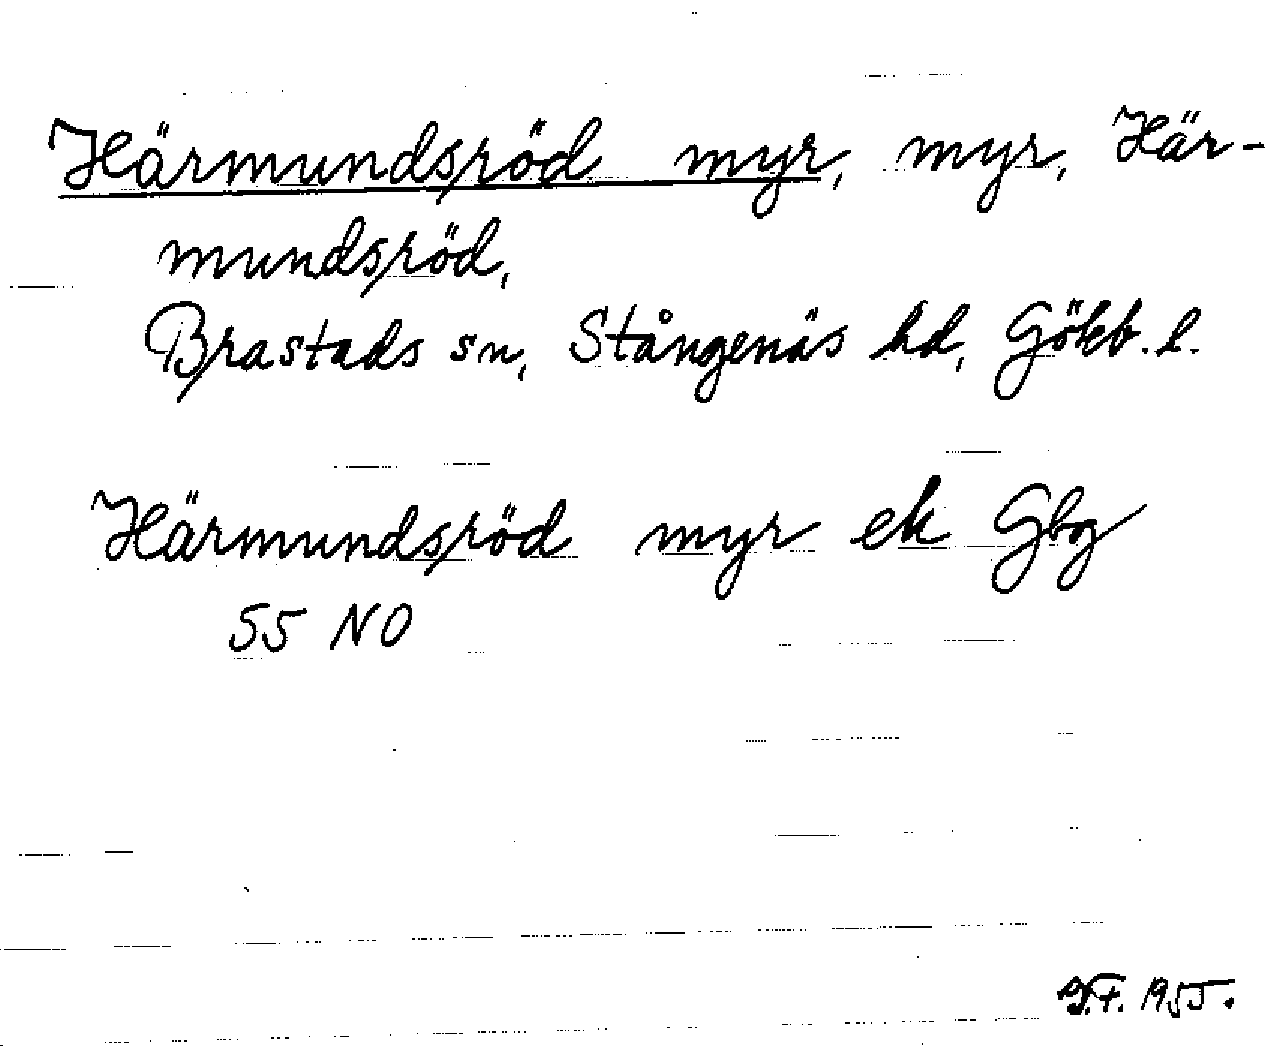 Härmundsröd myr, myr, Här-
mundsröd,
Brastads sn, Stångenäs hd, Gökb. l.
Härmundsröd myr ek Gbg
55 NO
1955.